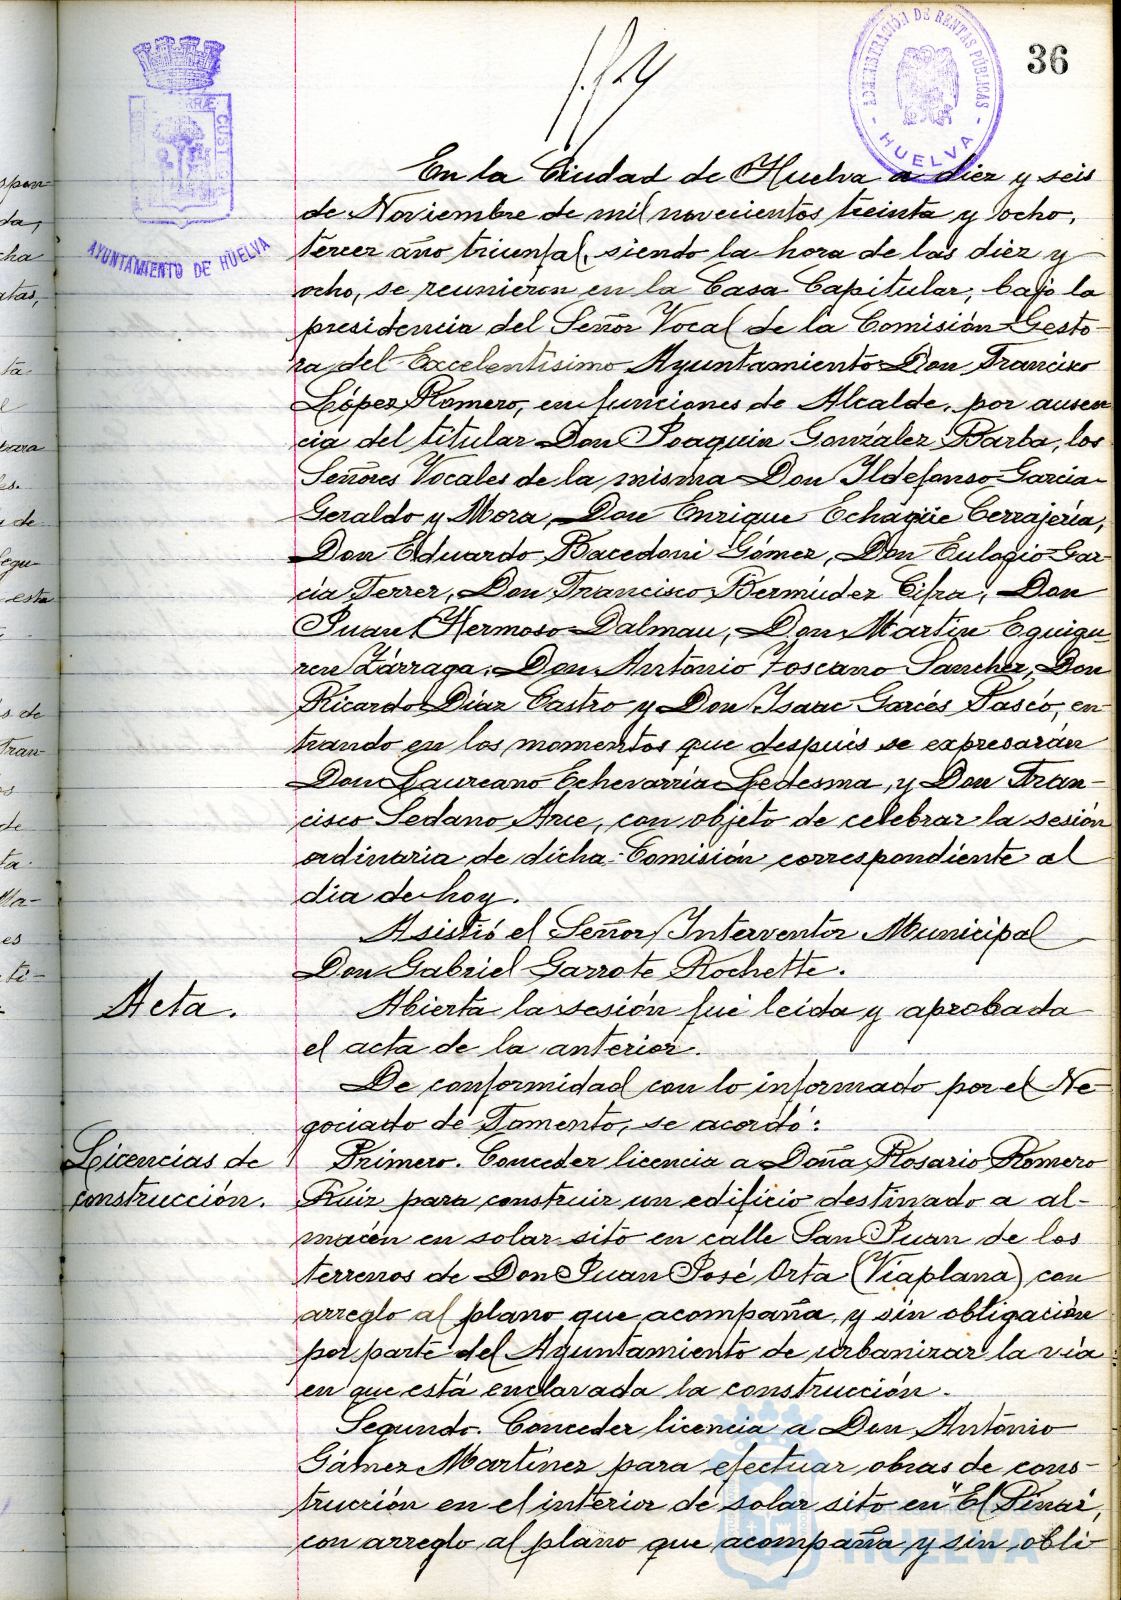 36
ADMINISTRACIÓN DE RENTAS PÚBLICAS
- HUELVA -
AYUNTAMIENTO DE HUELVA
En la Ciudad de Huelva a diez y seis
de Noviembre de mil novecientos treinta y ocho,
tercer año triunfal, siendo la hora de las diez y
ocho, se reunieron en la Casa Capitular, bajo la
presidencia del Señor Vocal de la Comisión Gesto-
ra del Excelentísimo Ayuntamiento Don Francisco
López Romero, en funciones de Alcalde, por ausen
cia del titular Don Joaquin González Barba, los
Señores Vocales de la misma Don Ildefonso Garcia-
Geraldo y Mora, Don Enrique Echagüe Cerrajería,
Don Eduardo Bacedoni Gómez, Don Eulogio Gar-
cía Ferrer, Don Francisco Bermúdez Cifra, Don
Juan Hermoso Dalmau, Don Martin Eguigu-
ren Zárraga, Don Antonio Toscano Sanchez, Don
Ricardo Díaz Castro y Don Isaac Garcés Pascó, en-
trando en los momentos que después se expresarán
Don Laureano Echevarría Ledesma, y Don Fran-
cisco Sedano Arce, con objeto de celebrar la sesión
ordinaria de dicha Comisión correspondiente al
dia de hoy.
Asistió el Señor Interventor Municipal
Don Gabriel Garrote Rochette.
Acta.
Abierta la sesión fué leida y aprobada
el acta de la anterior.
De conformidad con lo informado por el Ne-
gociado de Fomento, se acordó:
Licencias de
construcción.
Primero. Conceder licencia a Doña Rosario Romero
Ruiz para construir un edificio destinado a al-
macén en solar sito en calle San Juan de los
terrenos de Don Juan José Orta (Viaplana) con
arreglo al plano que acompaña, y sin obligación
por parte del Ayuntamiento de urbanizar la vía
en que está enclavada la construcción.
Segundo. Conceder licencia a Don Antonio
Gámez Martínez para efectuar obras de cons-
trucción en el interior de solar sito en "El Pinar",
con arreglo al plano que acompaña y sin obli-
HUELVA